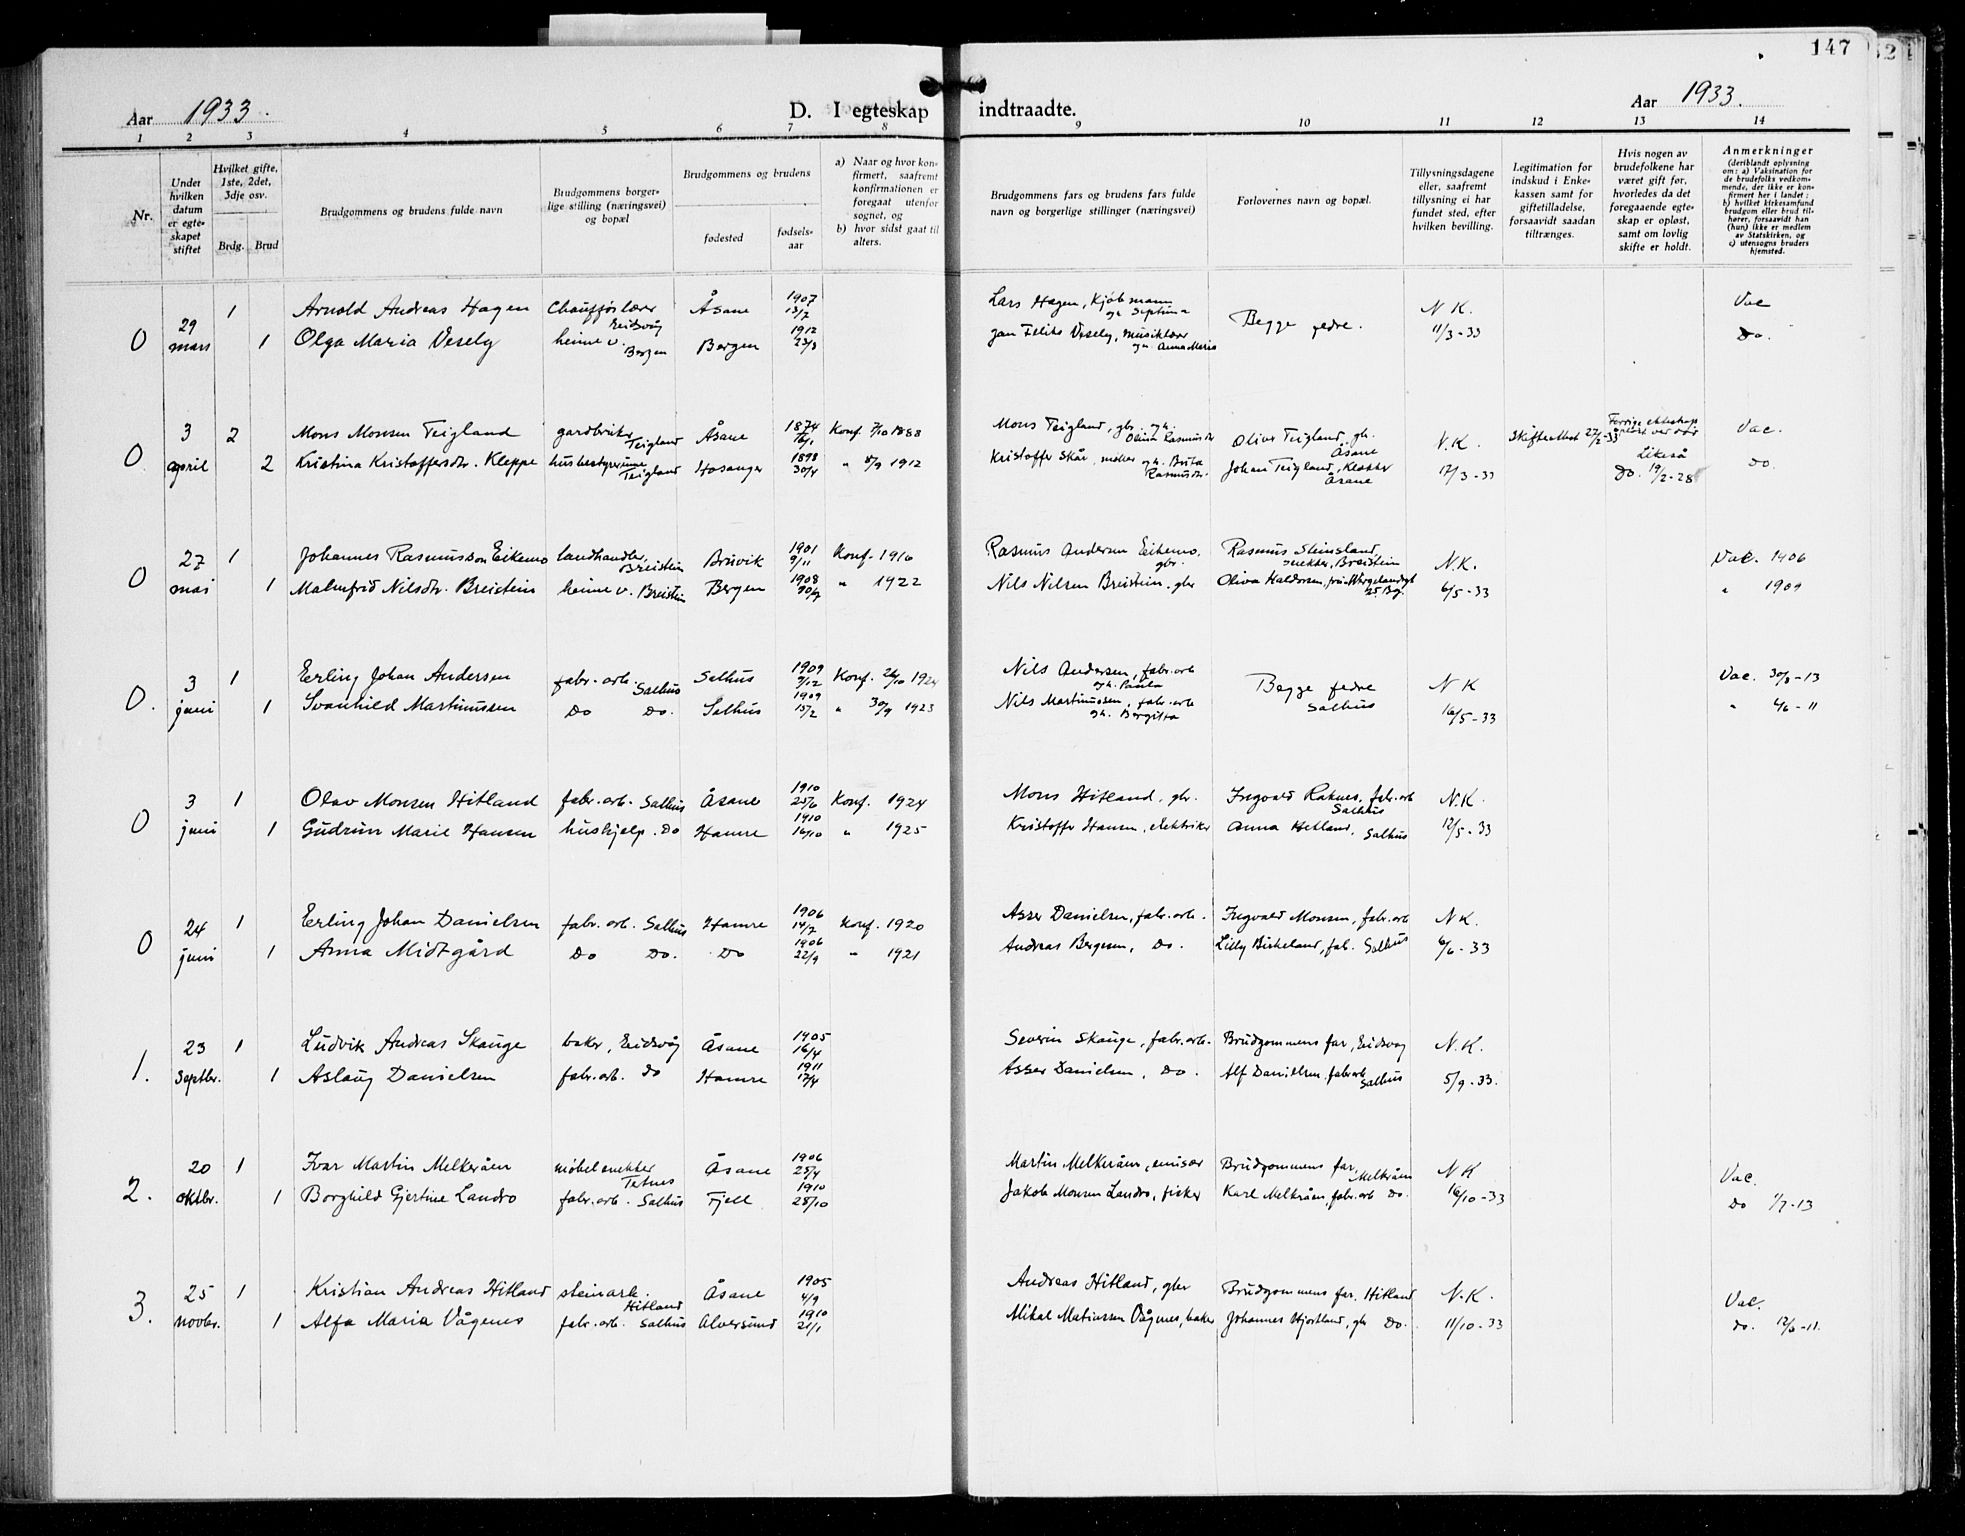 147
Aar 1933.
D. I egteskap indtraadte.
Aar 1933.
1 2 3 4 5 6 7 8 9 10 11 12 13 14
Nr.
Under hvilken datum er egte-skapet stiftet
Hvilket gifte, 1ste, 2det, 3dje osv.
Brdg. Brud
Brudgommens og brudens fulde navn
Brudgommens borger-lige stilling (næringsvei) og bopæl
Brudgommens og brudens
fødested
fødsels-aar
a) Naar og hvor kon-firmert, saafremt konfirmationen er foregaat utenfor sognet, og
b) hvor sidst gaat til alters.
Brudgommens fars og brudens fars fulde navn og borgerlige stillinger (næringsvei)
Forlovernes navn og bopæl.
Tillysningsdagene eller, saafremt tillysning ei har fundet sted, efter hvilken bevilling.
Legitimation for indskud i Enke-kassen samt for giftetilladelse, forsaavidt saadan tiltrænges.
Hvis nogen av brudefolkene har været gift før, hvorledes da det foregaaende egte-skap er opløst, samt om lovlig skifte er holdt.
Anmerkninger (deriblandt oplysning om: a) Vaksination for de brudefolks vedkom-mende, der ikke er kon-firmert her i landet; b) hvilket kirkesamfund brudgom eller brud til-hører, forsaavidt han (hun) ikke er medlem av Statskirken, og c) utensogns bruders hjemsted.
0 29 mars 1 Arnold Andreas Hagen Chaufførlærer Eidsvåg Åsane 1907 13/2 Lars Hagen, Kjøbmann og Septima Begge fedre. N.K. Vac
1 Olga Maria Vesely heime v. Bergen Bergen 1912 23/3 Jan Feliks Vesely, musiklærer og Anna Maria 11/3-33 Do.
0 3 april 2 Mons Monsen Teigland gardbruker Teigland Åsane 1874 16/1 Konf. 7/10 1888 Mons Teigland, gbr. og h. Olina Rasmusdr Oliver Teigland, gbr. Åsane N.K. Skifteattest 27/2-33 Forrige ekteskap opløst ved død Vac.
2 Kristina Kristoffersdtr. Kleppe husbestyrerinne Teigland Hosanger 1898 30/4 " 8/9 1912 Kristoffer Skår, møller og h. Brita Rasmusdr. Johan Teigland, Klokker Åsane 17/3-33 Likeså Do. 19/2-28 Do.
0 27 mai 1 Johannes Rasmusson Eikemo landhandler, Breistein Bruvik 1901 9/11 Konf. 1916 Rasmus Andersen Eikemo, gbr. Rasmus Steinsland, snekker, Breistein N.K. Vac. 1906
1 Malmfrid Nilsdtr. Breistein heime v. Breistein Bergen 1908 Nils Nilsen Breistein, gbr " 1922 Oliva Haldorsen, fru 6/5-33 " 1909
0. 3 juni 1 Erling Johan Andersen fabr. arb. Salhus Salhus 1909 9/12 Konf. 26/10 1924 Nils Andersen, fabr. arb og h. Paula Begge fedre Salhus N K Vac. 30/8-13
1 Svanhild Martinussen Do Do. Salhus 1909 13/2 " 30/9 1923 Nils Martinussen, fabr. arb og h. Bergitta 16/5-33 " 6/6-11
0 3 juni 1 Olav Monsen Hitland fabr. arb. Salhus Åsane 1910 25/6 Konf. 1924 Mons Hitland, gbr. Ingvald Raknes, fabr. arb Salhus N.K.
1 Gudrun Marie Hansen hushjelp. Do Hamre 1910 16/10 " 1925 Kristoffer Hansen, elektriker Anna Hetland, Salhus 12/5-33
0 24 juni 1 Erling Johan Danielsen fabr. arb. Salhus Hamre 1906 14/7 Konf. 1920 Asser Danielsen, fabr. arb. Ingvald Monsen, fabr. arb N K.
1 Anna Midtgård Do Do. Do 1906 22/9 " 1921 Andreas Bergesen, Do. Lilly Birkeland, fab. Salhus 6/6-33
1. 23 Septbr. 1 Ludvik Andreas Skauge baker, Eidsvåg Åsane 1905 16/4 Severin Skauge, fabr. arb. Brudgommens far, Eidsvåg N.K.
1 Aslaug Danielsen fabr. arb. Do Hamre 1911 17/4 Asser Danielsen, Do. Alf Danielsen, fabr arb Salhus 5/9-33.
2. 20 oktbr. 1 Ivar Martin Melkeråen møbelsnekker Tertnes Åsane 1906 25/4 Martin Melkeråen, emisær Brudgommens far, Melkråen N K Vac.
1 Borghild Gjertine Landro fabr. arb. Salhus Fjell 1910 28/10 Jakob Monsen Landro, fisker Karl Melkråen, fabr. arb Do. 16/10-33 Do 1/7-13
3. 25 novbr. 1 Kristian Andreas Hitland steinarb. Hitland Åsane 1905 4/9 Andreas Hitland, gbr Brudgommens far. Hitland N.K. Vac.
1 Alfa Maria Vågenes fabr. arb. Salhus Alversund 1910 21/1 Mikal Matiassen Vågenes, baker Johannes Hjortland, gbr Do. 11/10-33 do. 12/6-11.